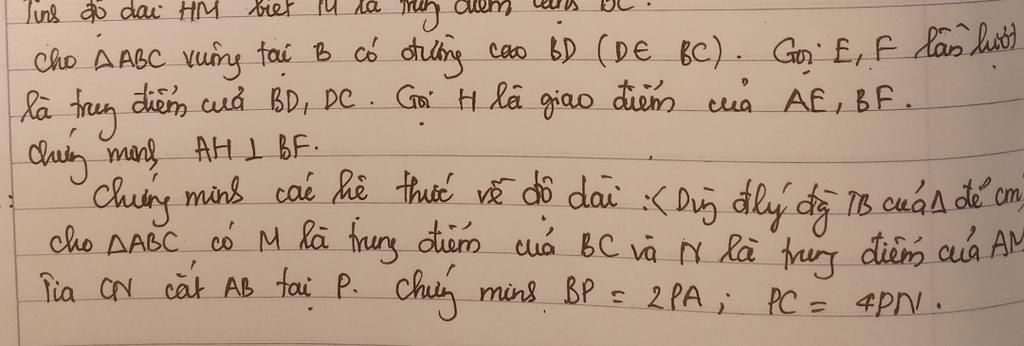 Tính độ dài HM biết M là trung điểm cạnh BC.
Cho ΔABC vuông tại B có đường cao BD (D∈ BC). Gọi E, F lần lượt
là trung điểm của BD, DC. Gọi H là giao điểm của AE, BF.
Chứng minh AH ⊥ BF.
Chứng minh các hệ thức về độ dài :< Dùng đlý đg TB của Δ để cm
Cho ΔABC có M là trung điểm của BC và N là trung điểm của AM
Tia CN cắt AB tại P. Chứng minh BP = 2PA; PC = 4PN.